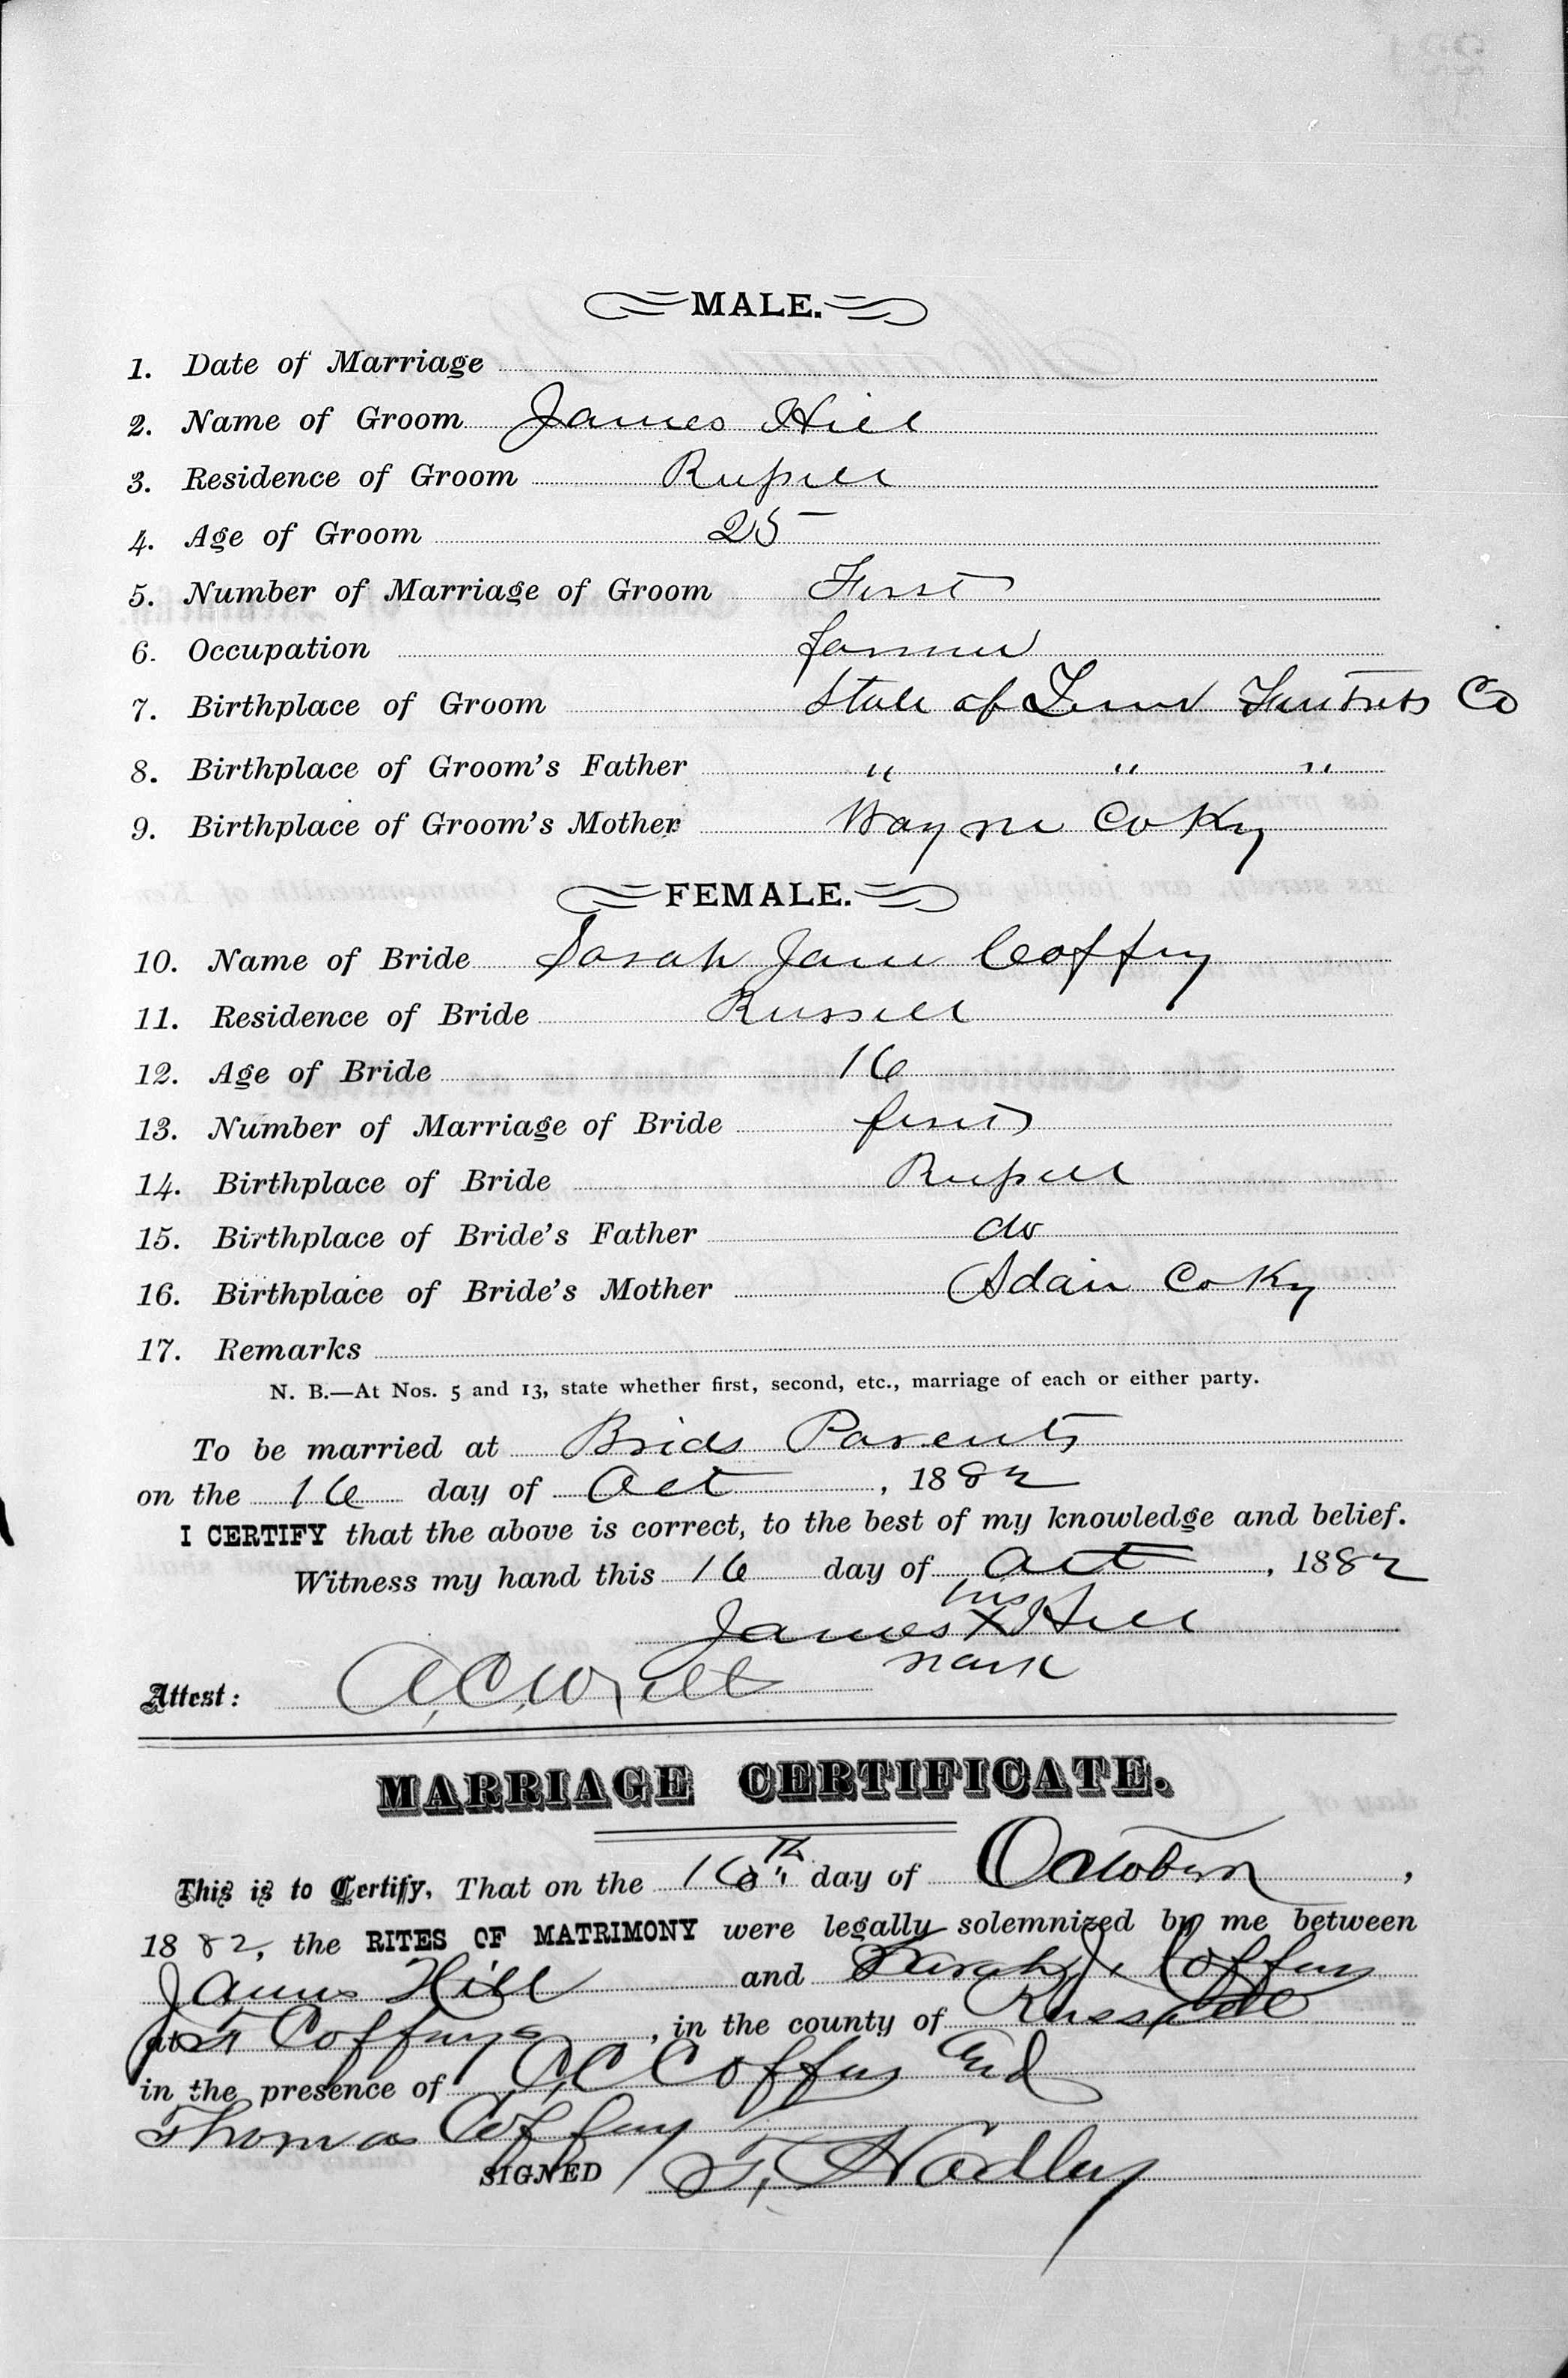 MALE.
1. Date of Marriage
2. Name of Groom James Hill
3. Residence of Groom Russell
4. Age of Groom 25
5. Number of Marriage of Groom First
6. Occupation farmer
7. Birthplace of Groom State of Tenn Co
8. Birthplace of Groom's Father " " "
9. Birthplace of Groom's Mother Wayne Co Ky
FEMALE.
10. Name of Bride Sarah Jane Coffey
11. Residence of Bride Russell
12. Age of Bride 16
13. Number of Marriage of Bride first
14. Birthplace of Bride Russell
15. Birthplace of Bride's Father do
16. Birthplace of Bride's Mother Adair Co Ky
17. Remarks
N. B.—At Nos. 5 and 13, state whether first, second, etc., marriage of each or either party.
To be married at Brids Parents
on the 16 day of Oct, 1882
I CERTIFY that the above is correct, to the best of my knowledge and belief.
Witness my hand this 16 day of Oct, 1882
his
James X Hill
mark
Attest: A. C. W
MARRIAGE CERTIFICATE.
This is to Certify, That on the 16th day of October,
1882, the RITES OF MATRIMONY were legally solemnized by me between
James Hill and Sarah J. Coffey
at F Coffeys, in the county of Russell
in the presence of C Coffey And
Thomas Coffey
SIGNED F, Hadley